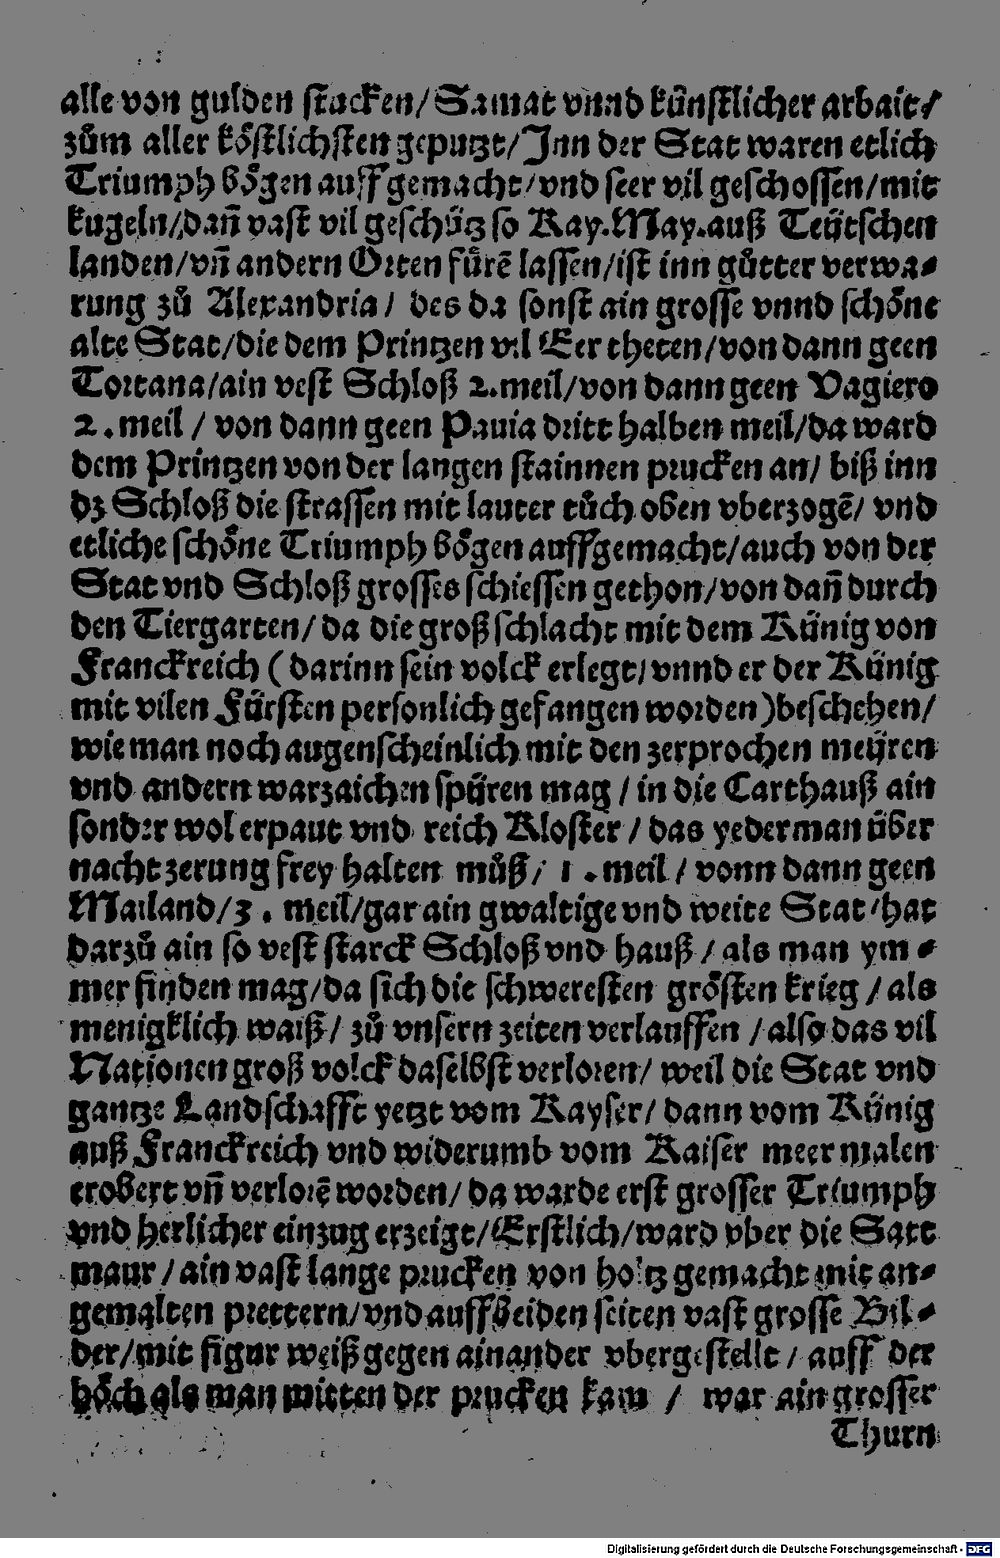 alle von gulden stucken/Samat vnnd künstlicher arbait/
zům aller köstlichsten geputzt/Inn der Stat waren etlich
Triumph bögen auffgemacht/vnd seer vil geschossen/mit
kugeln/dañ vast vil geschütz so Kay.May.auß Teütschen
landen/vñ andern Orten fürẽ lassen/ist inn gůtter verwa⸗
rung zů Alexandria/ des da sonst ain grosse vnnd schöne
alte Stat/die dem Printzen vil Eer theten/von dann geen
Tortana/ain vest Schloß 2.meil/von dann geen Vagiero
2.meil / von dann geen Pauia dritt halben meil/da ward
dem Printzen von der langen stainnen prucken an/ biß inn
dz Schloß die strassen mit lauter tůch oben vberzogẽ/ vnd
etliche schöne Triumph bögen auffgemacht/auch von der
Stat vnd Schloß grosses schiessen gethon/von dañ durch
den Tiergarten/ da die groß schlacht mit dem Künig von
Franckreich (darinn sein volck erlegt/vnnd er der Künig
mit vilen Fürsten personlich gefangen worden)beschehen/
wie man noch augenscheinlich mit den zerprochen meüren
vnd andern warzaichen spüren mag / in die Carthauß ain
sonder wol erpaut vnd reich Kloster / das yederman über
nacht zerung frey halten můß/ 1.meil / vonn dann geen
Mailand/3. meil/gar ain gwaltige vnd weite Stat/hat
darzů ain so vest starck Schloß vnd hauß / als man ym⸗
mer finden mag/da sich die schweresten grösten krieg / als
menigklich waiß/ zů vnsern zeiten verlauffen /also das vil
Nationen groß volck daselbst verloren/ weil die Stat vnd
gantze Landschafft yetzt vom Kayser/ dann vom Künig
auß Franckreich vnd widerumb vom Kaiser meermalen
erobert vñ verlorẽ worden/ da warde erst grosser Triumph
vnd herlicher einzug erzeigt/Erstlich/ward vber die Satt
maur / ain vast lange prucken von holtz gemacht mit an⸗
gemalten prettern/vnd auff beiden seiten vast grosse Bil⸗
der/mit figur weiß gegen ainander vbergestellt / auff der
höch als man mitten der prucken kam / war ain grosser
Thurn
Digitalisierung gefördert durch die Deutsche Forschungsgemeinschaft - DFG